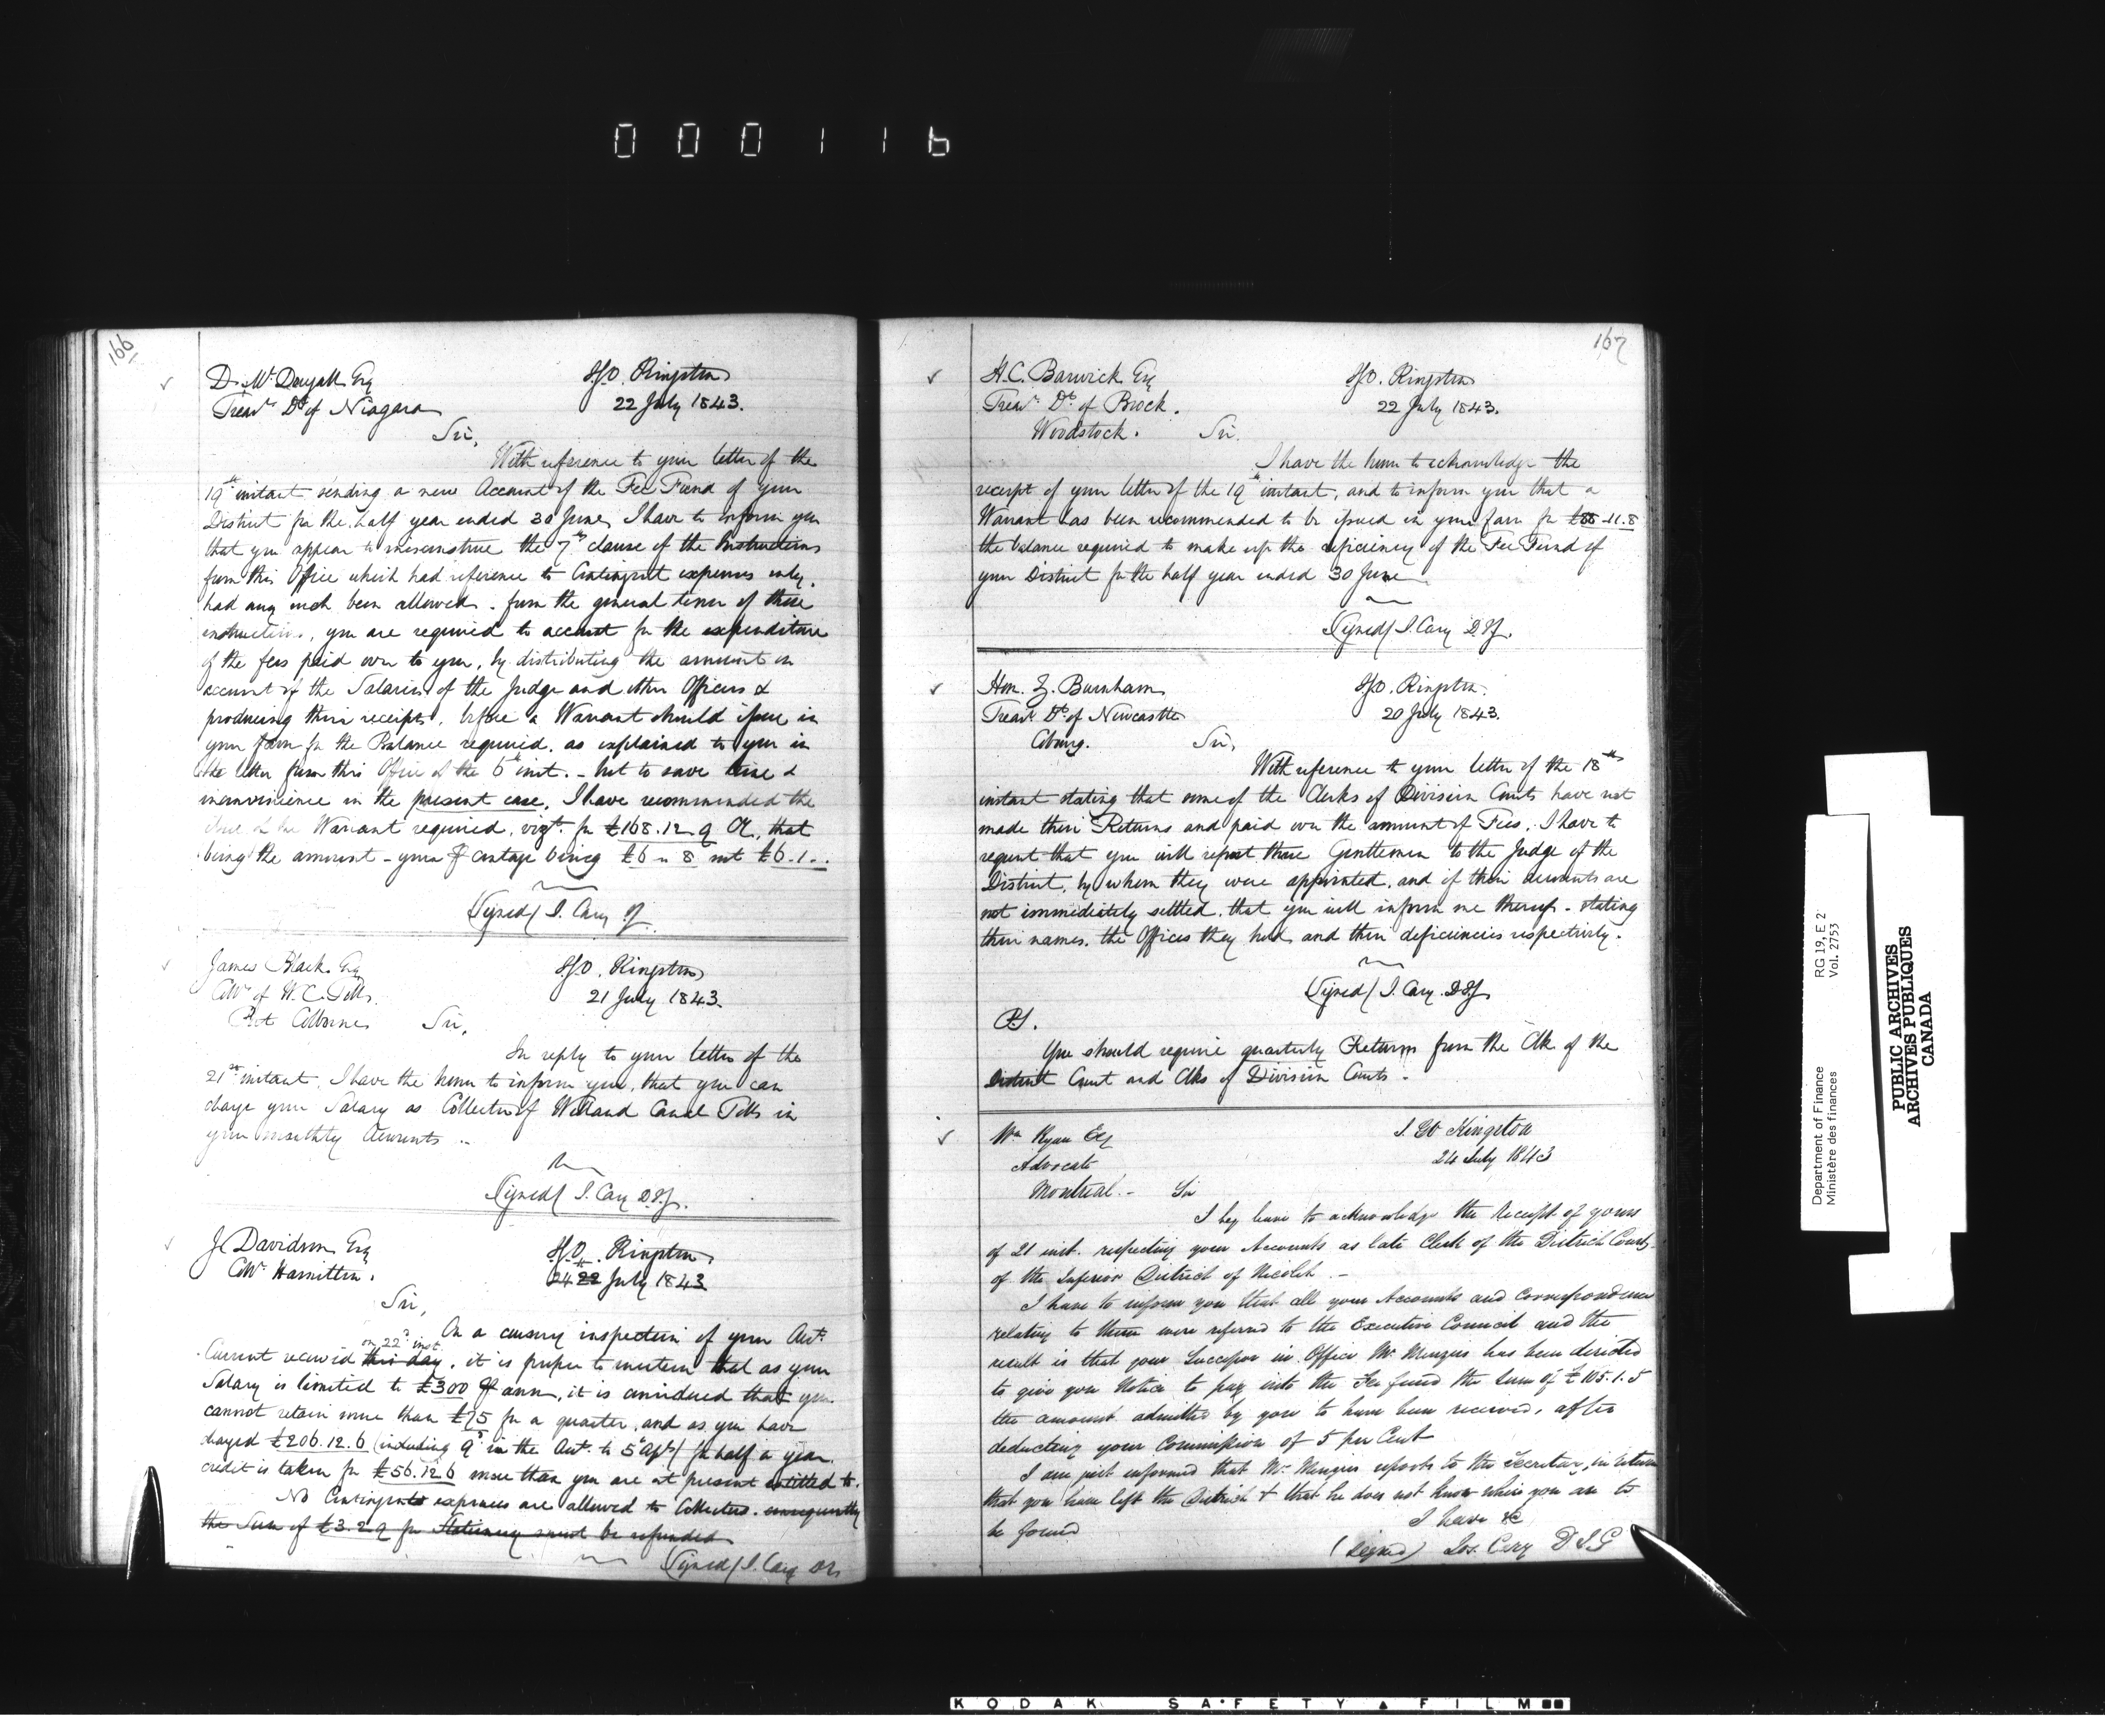 000116
166
D. McDougall Esq
Treasr Dt of Niagara
I.G.O. Kingston
22 July 1843.
Sir,
With reference to your letter of the
19th instant sending a new Account of the Fee Fund of your
District for the half year ended 30 June, I have to inform you
that you appear to misconstrue the 7th clause of the Instructions
from this Office which had reference to Contingent expenses only,
had any such been allowed. from the general tenor of those
instructions, you are required to account for the expenditure
of the fees paid over to you, by distributing the amount on
account of the Salaries of the Judge and other Officers &
producing their receipts, before a Warrant should issue in
your favor for the Balance required, as explained to you in
the letter from this Office of the 6th inst. - but to save time &
inconvenience in the present case, I have recommended the
issue of the Warrant required, vizt. for £168.12.9 Cy, that
being the amount - your P centage being £6 " 8 not £6.1..
(Signed) J. Cary
James Black Esq
Collr of W.C. Tolls
Port Colborne
I.G.O. Kingston
21 July 1843.
Sir,
In reply to your letter of the
21st instant, I have the honor to inform you, that you can
charge your Salary as Collector of Welland Canal Tolls in
your monthly Accounts ..
(Signed) J. Cary D.I.G.
J. Davidson Esq
Collr Hamilton.
I.G.O. Kingston
24 22 July 1843
Sir,
On a cursory inspection of your Actt
on 22d inst.
Current received this day, it is proper to mention that as your
Salary is limited to £300 P ann, it is considered that you
cannot retain more than £75 for a quarter, and as you have
charged £206.12.6 (including 9d in the Actt to 5th Apl) for half a year
credit is taken for £56.12.6 more than you are at present entitled to.
No Contingent expenses are allowed to Collectors. consequently
the Sum of £3.2.9 for Stationery must be refunded
(Signed) J. Cary
167
H.C. Barwick Esq
Treasr Dt of Brock.
Woodstock.
I.G.O. Kingston
22 July 1843.
Sir.
I have the honor to acknowledge the
receipt of your letter of the 19th instant, and to inform you that a
Warrant has been recommended to be issued in your favor for £88.11.8
the balance required to make up the deficiency of the Fee Fund of
your District for the half year ended 30 June
(Signed) J. Cary D.I.G.
Hon. Z. Burnham
Treasr Dt of Newcastle
Cobourg.
I.G.O. Kingston.
20 July 1843.
Sir,
With reference to your letter of the 18th
instant stating that some of the Clerks of Division Courts have not
made their Returns and paid over the amount of Fees, I have to
request that you will report those Gentlemen to the Judge of the
District, by whom they were appointed, and if their accounts are
not immediately settled, that you will inform me thereof - stating
their names, the Offices they hold and their deficiencies respectively.
(Signed) J. Cary D.I.G.
P.S.
You should require quarterly Returns from the Clk of the
District Court and Clks of Division Courts -
Wm Ryan Esq
Advocate
Montreal. -
I. GO Kingston
24 July 1843
Sir
I beg leave to acknowledge the Receipt of yours
of 21 inst. respecting your Accounts as late Clerk of the District Court
of the Inferior District of Nicolet. -
I have to inform you that all your Accounts and Correspondence
relating to them were referred to the Executive Council and the
result is that your Successor in Office Mr Menzies has been directed
to give you Notice to pay into the Fee fund the Sum of £105.1.5
the amount admitted by you to have been received, after
deducting your Commission of 5 per Cent
I am just informed that Mr Menzies reports to the Secretary, in return
that you have left the District & that he does not know where you are to
be found
I have &c
(Signed) Jos. Cary D I G
Department of Finance
Ministère des finances
RG 19, E 2
Vol. 2753
PUBLIC ARCHIVES
ARCHIVES PUBLIQUES
CANADA
KODAK SAFETY FILM